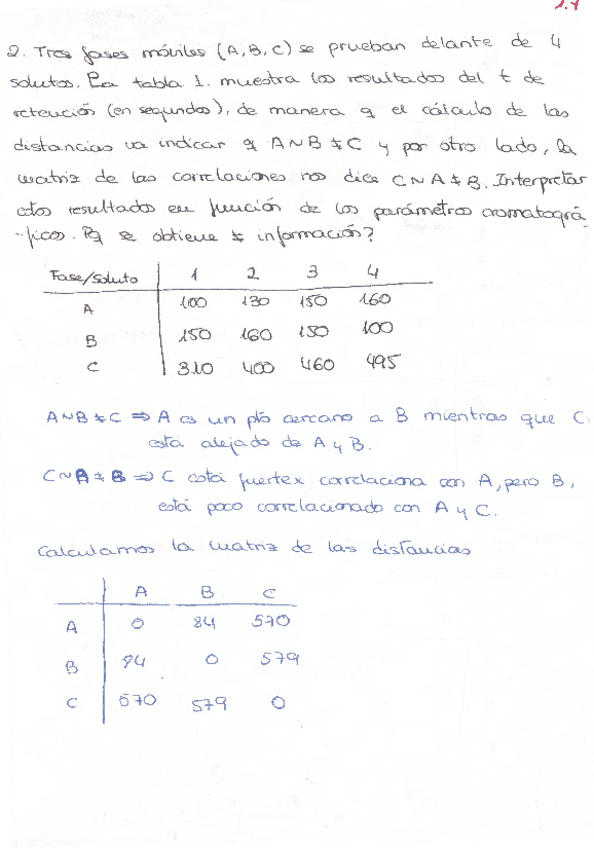 1.7
2. Tres fases móviles (A, B, C) se prueban delante de 4
solutos. La tabla 1. muestra los resultados del t de
retención (en segundos), de manera q el cálculo de las
distancias va indicar q A~B ≠ C y por otro lado, la
matriz de las correlaciones nos dice C~A ≠ B. Interpretar
estos resultados en función de los parámetros cromatográ-
-ficos. Pq se obtiene ≠ información?
Fase/Soluto 1 2 3 4
A 100 130 150 160
B 150 160 150 100
C 310 400 460 495
A~B ≠ C ⇒ A es un pto cercano a B mientras que C
está alejado de A y B.
C~A ≠ B ⇒ C está fuertex correlaciona con A, pero B,
está poco correlacionado con A y C.
Calculamos la matriz de las distancias
A B C
A 0 84 570
B 84 0 579
C 570 579 0